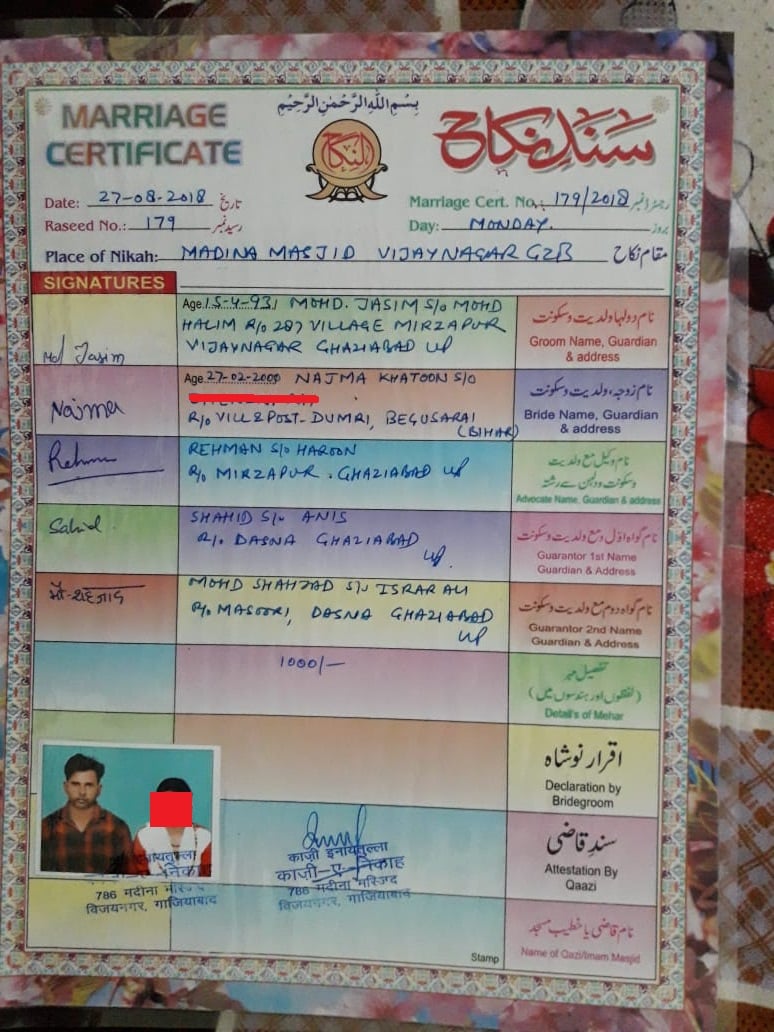 بِسْمِ اللهِ الرَّحْمٰنِ الرَّحِيْمِ
MARRIAGE CERTIFICATE
النکاح
سندِ نکاح
Date: 27-08-2018 تاریخ
Marriage Cert. No.: 179/2018 رجسٹرڈ نمبر
Raseed No.: 179 رسید نمبر
Day: MONDAY. بروز
Place of Nikah: MADINA MASJID VIJAYNAGAR GZB مقام نکاح
SIGNATURES
Age 15-4-93 MOHD. JASIM S/O MOHD
HALIM R/O 287 VILLAGE MIRZAPUR
VIJAYNAGAR GHAZIABAD UP
Md Jasim
نام دولہا ولدیت و سکونت
Groom Name, Guardian
& address
Age 27-02-2000 NAJMA KHATOON S/O
R/O VILL & POST-DUMRI, BEGUSARAI
(BIHAR)
Najma
نام زوجہ، ولدیت و سکونت
Bride Name, Guardian
& address
REHMAN S/O HAROON
R/O MIRZAPUR. GHAZIABAD UP
Rehman
نام وکیل مع ولدیت
سکونت و دلہن سے رشتہ
Advocate Name, Guardian & address
SHAHID S/O ANIS
R/O DASNA GHAZIABAD
UP.
Sahid
نام گواہ اوّل مع ولدیت و سکونت
Guarantor 1st Name
Guardian & Address
MOHD SHAHZAD S/O ISRAR ALI
R/O MASOORI, DASNA GHAZIABAD
UP
मौ-शहजाद
نام گواہ دوم مع ولدیت و سکونت
Guarantor 2nd Name
Guardian & Address
1000/-
تفصیل مہر
(لفظوں اور ہندسوں میں)
Detail's of Mehar
اقرار نوشاہ
Declaration by
Bridegroom
سندِ قاضی
Attestation By
Qaazi
काज़ी इनायतुल्ला
काज़ी-ए-निकाह
786 मदीना मस्जिद
विजयनगर, गाजियाबाद
नायतुल्ला
निकाह
786 मदीना मस्जिद
विजयनगर, गाजियाबाद
نام قاضی یا خطیب مسجد
Name of Qazi/Imam Masjid
Stamp